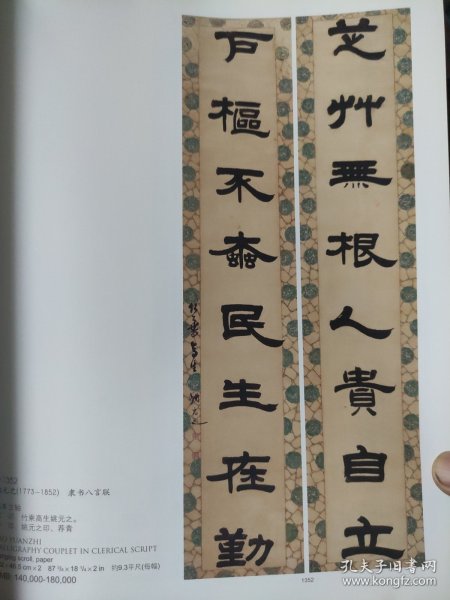 芝艸無根人貴自立
戶樞不蠹民生在勤
竹葉亭生姚元之
1352
元之(1773-1852) 隶书八言联
立轴
竹葉亭生姚元之。
姚元之印、荐青
YUANZHI
CALLIGRAPHY COUPLET IN CLERICAL SCRIPT
hanging scroll, paper
46.5 cm×2 87 ¾×18 ¼×2 in 约9.3平尺(每幅)
140,000-180,000
1352
孔夫子旧书网
kongfz.com